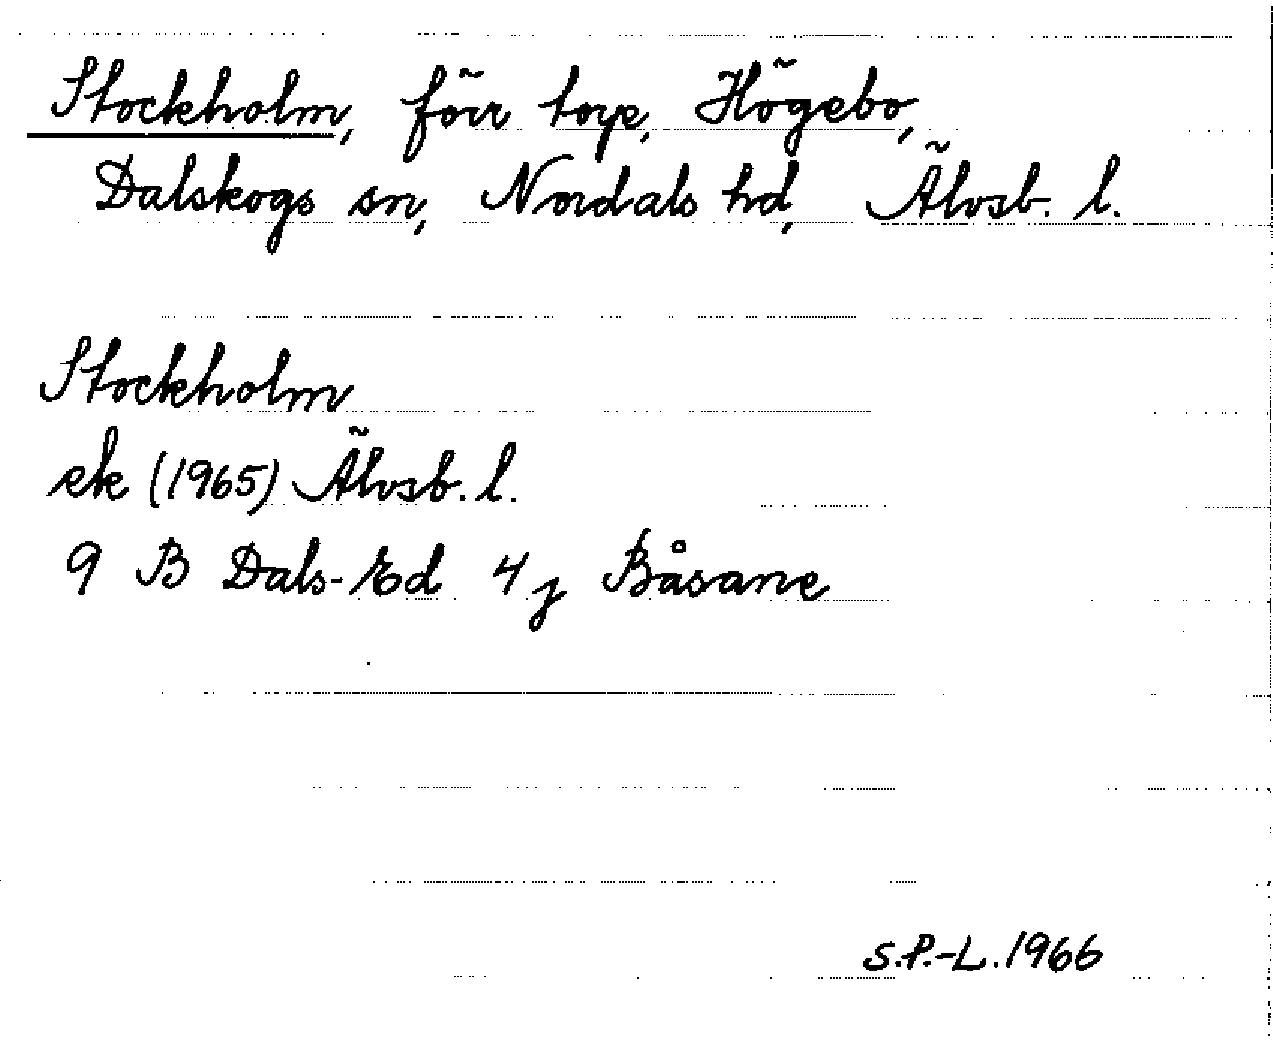 Stockholm, förr torp, Högebo,
Dalskogs sn, Nordals hd, Älvsb. l.
Stockholm
ek (1965) Älvsb. l.
9 B Dals-Ed 4 j Båsane
S.P.-L. 1966